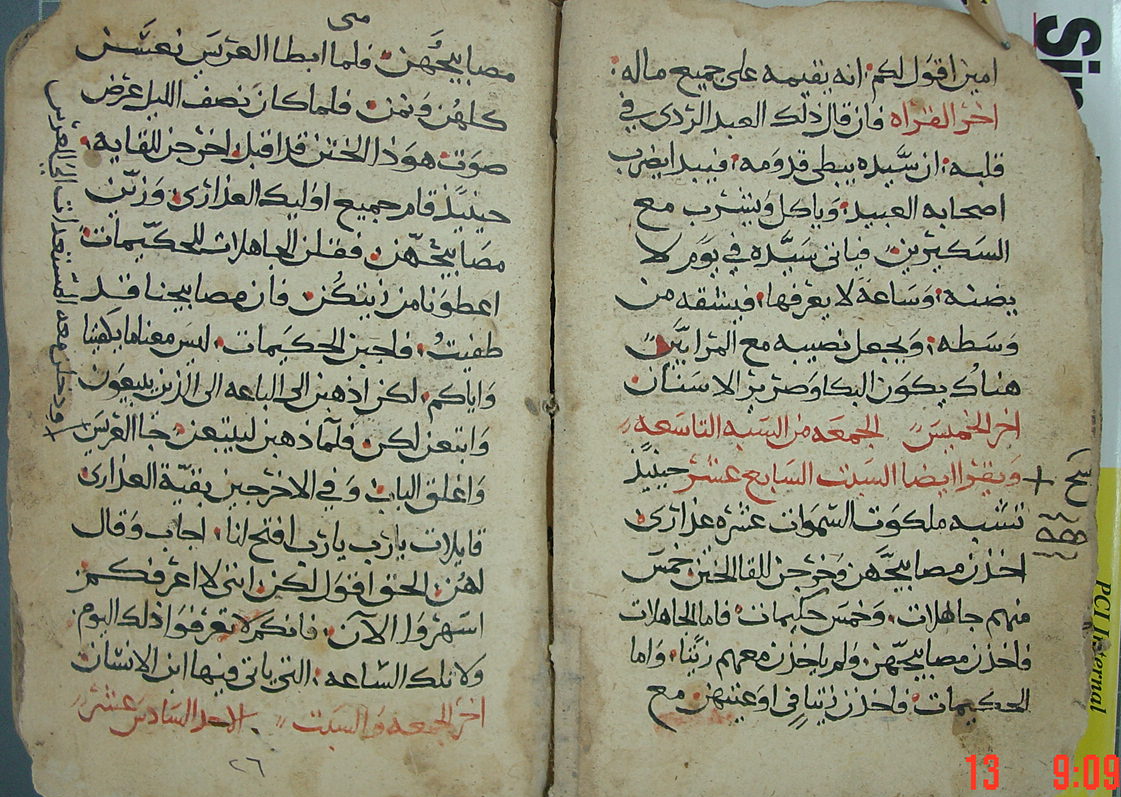 امين اقول لكم: انه يقيمه على جميع ماله:
اخر القراه فان قال ذلك العبد الردي في
قلبه: ان سيده يبطى قدومه: فيبدا يضرب
اصحابه العبيد: وياكل ويشرب مع
السكيرين فياتى سيده في يوم لا
يضنه: وساعه لا يعرفها: فيشقه من
وسطه: ويجعل نصيبه مع المرايين
هناك يكون البكا وصرير الاسنان
اخر الخميس الجمعه من السبه التاسعه
ويقرا ايضا السبت السابع عشر حينيذ
تشبه ملكوت السموات عشره عذارى
اخذن مصابيحهن وخرجن للقا الختن خمس
منهم جاهلات. وخمس حكيمات فاما الجاهلات
فاخذن مصابيحهن: ولم ياخذن معهم زيتا: واما
الحكيمات: فاخذن زيتا في اوعيتهن مع
متى
مصابيحهن: فلما ابطا العريس نعسن
كلهن ونمن: فلما كان نصف الليل عرض
صوت: هوذا الختن قد اقبل اخرجن للقايه:
حينيذ قام جميع اوليك العذارى: وزين
مصابيحهن: فقلن الجاهلات للحكيمات:
اعطونا من زيتكن: فان مصابيحنا قد
طفيت: فاجبن الحكيمات: ليس معنا ما يكفينا
واياكم: لكن اذهبن الى الباعه الى الذين يبيعون
وابتعن لكن: فلما ذهبن ليبتعن: جا العريس
واغلق الباب: وفي الاخر جين بقية العذارى
قايلات يارب يارب افتح لنا: اجاب وقال
لهن: الحق اقول لكن: انني لا اعرفكن
اسهروا الآن: فانكم لا تعرفوا ذلك اليوم
ولا تلك الساعه: التي ياتي فيها ابن الانسان
اخر الجمعه والسبت الاحد السادس عشر
ودخل معه المستعدات الى العرس
٢٦
13 9:09
PCI Internal
Sin